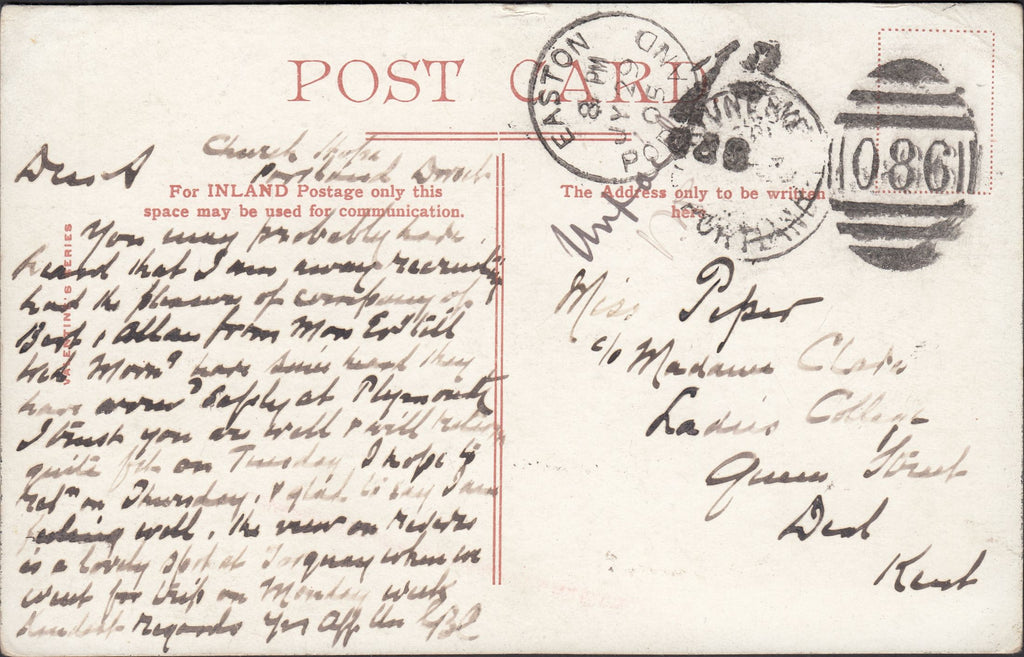 POST CARD
EASTON
8 PM
JY 29
05
PORTLAND
PORTLAND
086
Dear A
Church
Portland Dorset
For INLAND Postage only this
space may be used for communication.
The Address only to be written
here.
VALENTINE'S SERIES
You may probably have
heard that I am away
had the pleasure of company of
Allan from Mon till
Wed Morn? have since heard they
have safely at Plymouth
I trust you are well & will return
quite fit on Tuesday I hope to
on Thursday, & glad to say I am
feeling well, the view on
is a lovely spot at Torquay when we
went for trip on Monday with
kindest regards Yrs Aff Un
Miss Piper
c/o Madame Clare
Ladies College
Queen Street
Deal
Kent